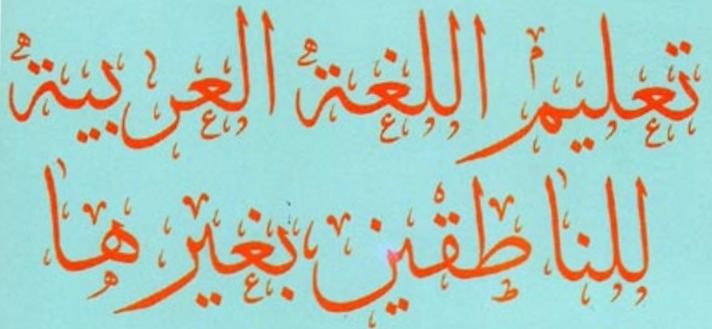 تعليم اللغة العربية
للناطقين بغيرها